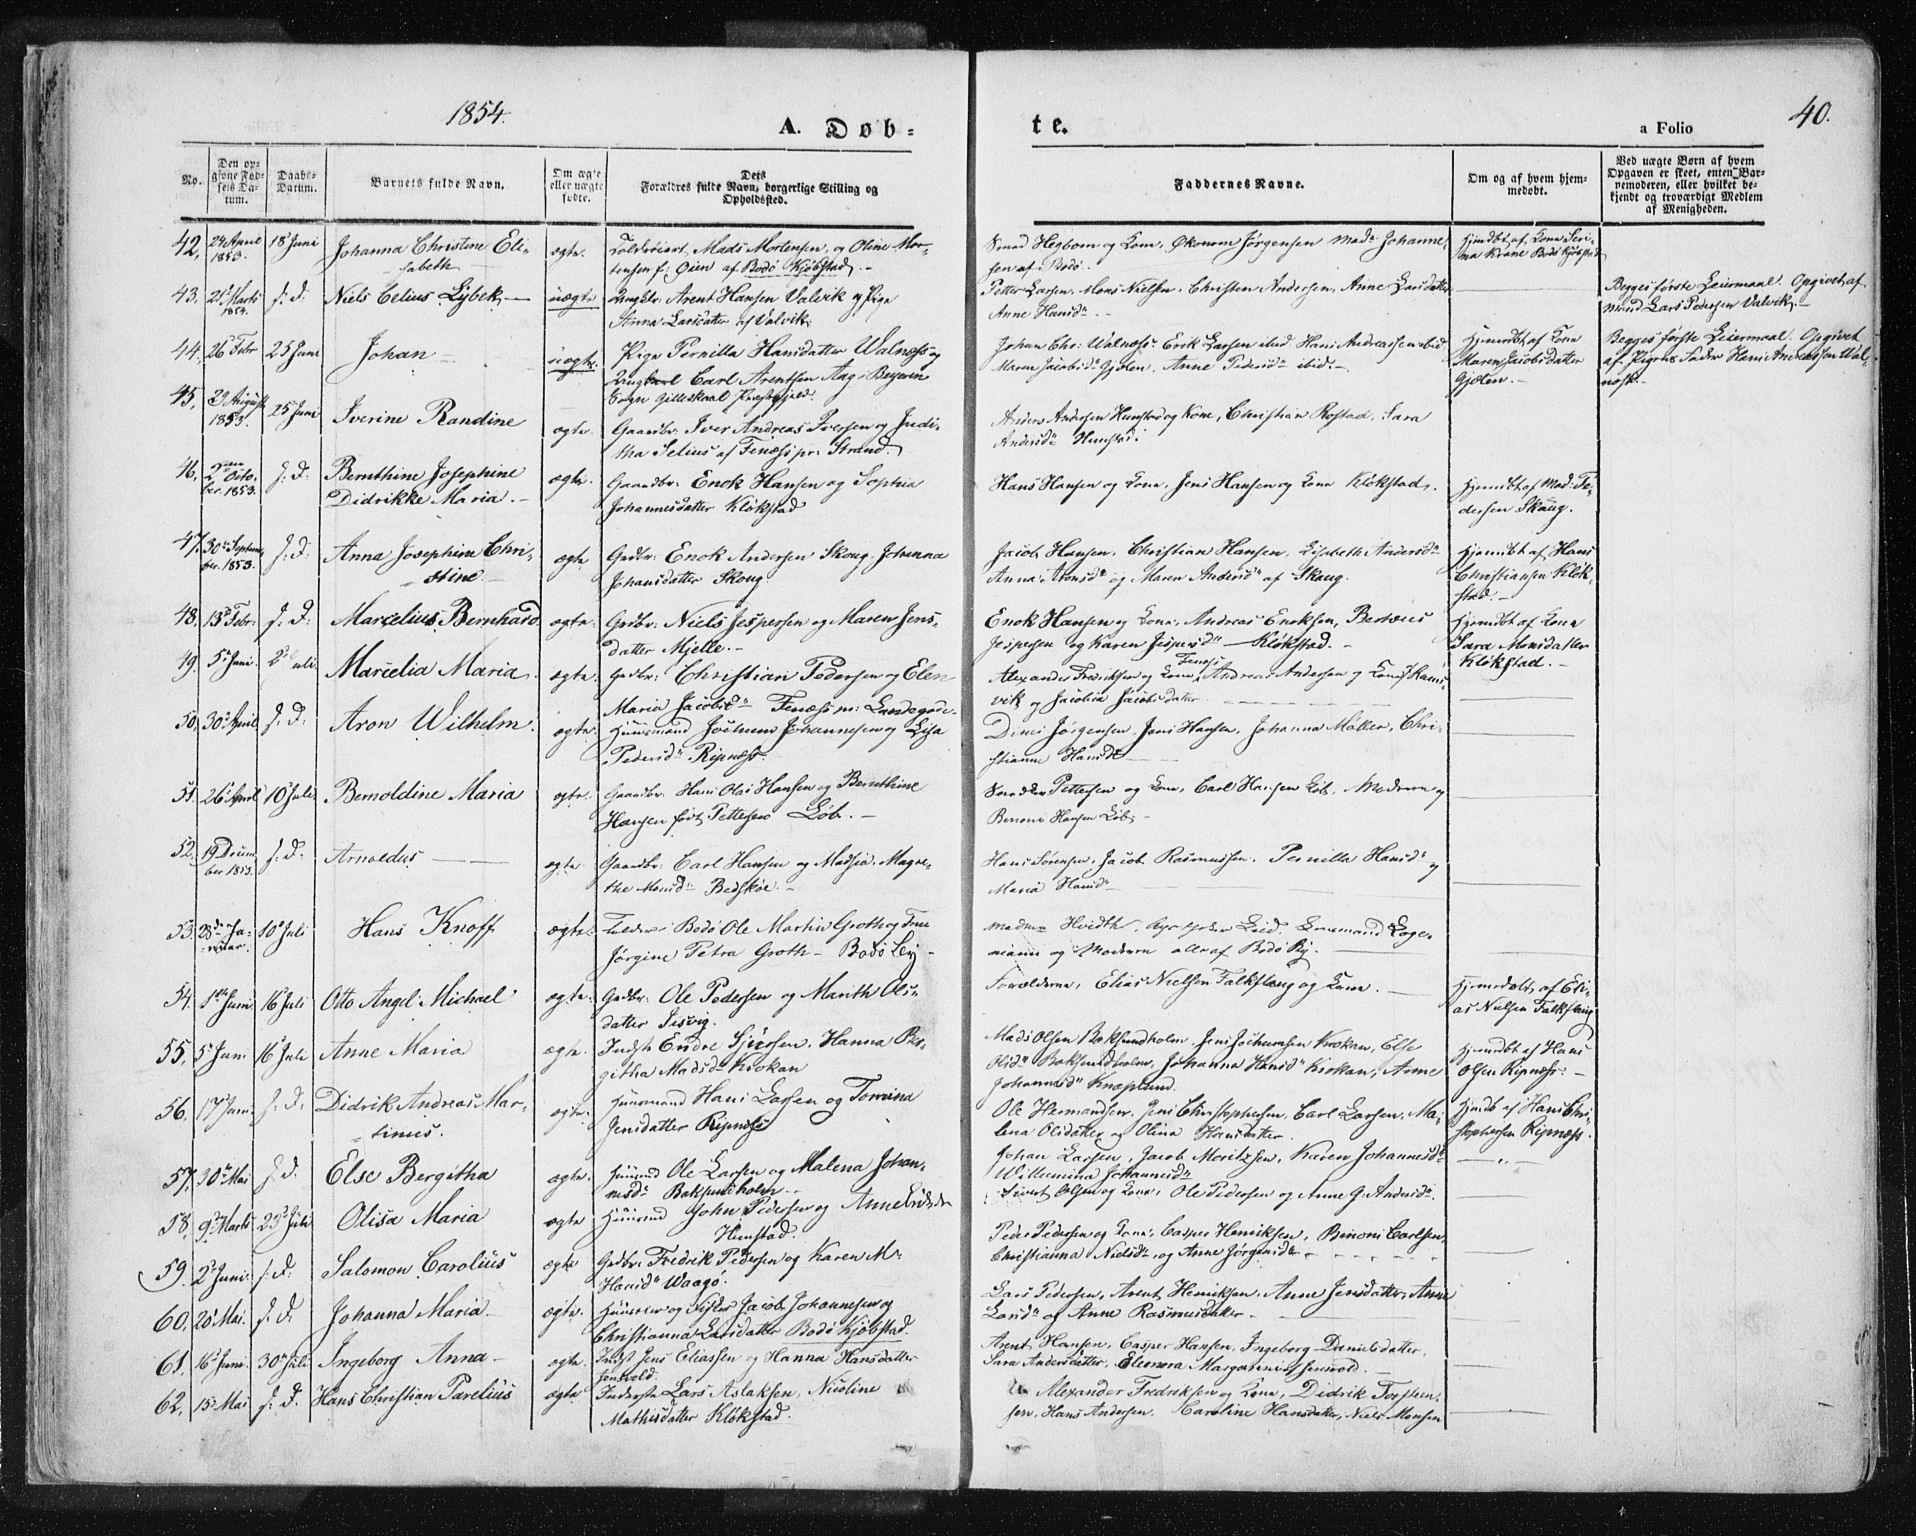 1854.
A. Døb-
te.
a Folio
40.
No.
Den op-
givne Fød-
sels Da-
tum.
Daabs-
Datum.
Barnets fulde Navn.
Om ægte
eller uægte
fødte.
Dets
Forældres fulde Navn, borgerlige Stilling og
Opholdssted.
Faddernes Navne.
Om og af hvem hjem-
medøbt.
Ved uægte Børn af hvem
Opgaven er skeet, enten Bar-
nemoderen, eller hvilket be-
kjendt og troværdigt Medlem
af Menigheden.
42. 24 April 1853. 18 Juni Johanna Christine Eli-
sabeth ægte. Mads Mortensen, og Oline Mor-
tensen f: Øien af Bodö Kjöbstad.
Hegborn og Kone, Økonom Jörgensen Mad. Johanne-
sen af Bodö.
Hjemdbt af Kone Seri-
na Krane Bodö Kjöbstad
43. 21 Marts 1854. s. d. Niels Celius Lybek uægte Ungkr. Arent Hansen Valvik og Pige
Anna Larsdatter af Valvik.
Petter Larsen, Mons Nielsen, Christen Andersen, Anne Larsdatter
Anne Hansd.
Begges første Leiermaal. Opgivet af
Lars Pedersen Valvik.
44. 26 Febr 25 Juni Johan uægte. Pige Pernilla Hansdatter Walnæss og
Ungkarl Carl Arentsen Aag, Beyeren
Sogn Gilleskaal Præstegjeld.
Johan Chr: Walnæss. Erik Larsen ibid Hans Andreassen ibid
Maren Jacobsd. Gjølen, Anne Pedersd. ibid.
Hjemdbt af Kone
Maren Jacobsdatter
Gjølen.
Begges første Leiermaal. Opgivet
af Pigens Fader Hans Andreassen Wal-
næss.
45. 29 August 1853. 25 Juni Iverine Randine ægte. Gaardbr. Iver Andreas Iversen og Judi-
tha Selius af Fenæss pr: Strand.
Anders Andersen Hunstad og Kone, Christian Rostad, Sara
Andersd. Hunstad.
46. 2 Octo-
ber 1853. s. d. Bernthine Josephine
Didrikke Maria. ægte. Gaardbr: Enok Hansen og Sophia
Johannesdatter Klökstad
Hans Hansen og Kone, Jens Hansen og Kone Klökstad.
Hjemdbt af Mad: Pe-
dersen Skaug.
47. 30 Septem-
ber 1853. s. d. Anna Josephine Chri-
stine ægte Grdbr: Enok Andersen Skoug, Johanna
Johansdatter Skoug
Jacob Hansen, Christian Hansen, Lisabeth Andersd.
Anna Aronsd. og Maren Andersd. af Skaug.
Hjemdbt af Hans
Christiansen Klök-
stad.
48. 13 Febr. s. d. Marcelius Bernhard ægte. Grdbr: Niels Jespersen og Maren Jens-
datter Mjelle.
Enok Hansen og Kone, Andreas Enoksen,
Jespersen og Karen Jespersd. Klökstad.
Hjemdbt af Kone
Sara Monsdatter
Klökstad.
49. 5 Juni. 2 Juli. Marcelia Maria ægte. Grdbr: Christian Pedersen og Elen
Maria Jacobsd. Fenæss
Fenæss
Alexander Fredriksen og Kone, Andreas Andersen og Kone
vik og Jacobia Jacobsdatter
50. 30 April s. d. Aron Wilhelm. ægte. Huusmand Jochum Johannesen og Lisa
Pedersd. Ripnæss.
Jörgensen, Jens Hansen, Johanna Möller, Chri-
stianne Hansd.
51. 26 April 10 Juli. Bernoldine Maria ægte. Gaardbr. Hans Olai Hansen og Bernthine
Hansen født Pettersen Löb.
Pettersen og Kone, Carl Hansen Löb, Moderen og
Benoni Hansen Löb
52. 19 Decem-
ber 1853. s. d. Arnoldus ægte Gaardbr: Carl Hansen og Madsia Magre-
the Monsd. Bedskøe.
Hans Sörensen, Jacob Rasmussen, Pernilla Hansd. og
Maria Hansd.
53. 23 Ja-
nuar. 10 Juli Hans Knoff ægte. Bodö Ole Martin Groth og Frue
Jörgine Petra Groth Bodö By
Madme Hvidth, Lorentzmand Lage-
mann og Moderen alle af Bodö By.
54. 1 Juni 16 Juli Otto Angel Michael ægte. Grdbr: Ole Pedersen og Marith Ols-
datter Seivig.
Forældrene, Elias Nielsen Falkflaug og Kone.
Hjemdøbt af Eli-
as Nielsen Falkflaug
55. 5 Juni 16 Juli Anne Maria ægte. Indst: Endre Sjursen, Hanna Bir-
githa Madsd. Krokan
Mads Olsen Baksundholm, Jens Jochumsen Krokan, Else
Olsd. Baksundholm, Johanna Hansd. Krokan, Anne
Johannesd. Knaplund.
Hjemdbt af Hans
Olsen Ripnæss.
56. 17 Juni. s. d. Didrik Andreas Mar-
tinus. ægte. Huusmand Hans Larsen og Tomina
Jensdatter Ripnæss
Ole Hermandsen, Jens Christophersen, Carl Larsen, Ma-
lena Olsdatter og Olina Hansdatter.
Hjmdb af Hans Chri-
stophersen Ripnæss.
57. 30 Mai s. d. Else Bergitha ægte. Huusmd Ole Larsen og Malena Johan-
nesd. Baksundholm
Johan Larsen, Jacob Moritzsen, Karen Johannesd.
Willumina Johannesd.
58. 9 Marts 23 Juli Olisa Maria ægte Huusmd John Pedersen og Anne
Hunstad.
Sivert Olsen og Kone, Ole Pedersen og Anne G. Andersd.
59. 2 Juni. s. d. Salomon Carolius ægte Grdbr: Fredrik Pedersen og Karen M.
Hansd. Waagö.
Peder Pedersen og Kone, Casper Henriksen, Benoni Carlsen
Christianna Nielsd. og Anne Jörgensd.
60. 20 Mai. s. d. Johanna Maria ægte. Huuseier og Fisker Jacob Johannesen og
Christianna Larsdatter Bodö Kjöbstad.
Lars Pedersen, Arent Henriksen, Anne Jensdatter, Anne
Larsd. og Anne Rasmusdatter
61. 16 Juni. 30 Juli Ingeborg Anna ægte. Indst Jens Eliassen og Hanna Hansdatter
Jensvold.
Arent Hansen, Casper Hansen, Ingeborg Danielsdatter,
Sara Andersdatter, Elenora Margareta Jensvold.
62. 15 Mai s. d. Hans Christian Parelius ægte Inderste Lars Aslaksen, Nicoline
Mathisdatter Klökstad.
Alexander Fredriksen og Kone, Didrik Torsten-
sen, Hans Andersen, Caroline Hansdatter, Niels Monsen